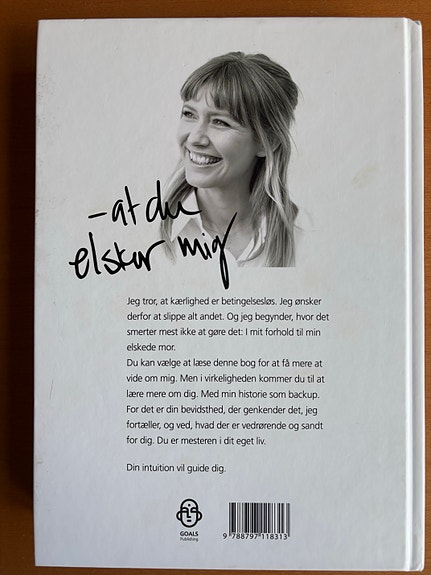 – at du
elsker mig
Jeg tror, at kærlighed er betingelsesløs. Jeg ønsker
derfor at slippe alt andet. Og jeg begynder, hvor det
smerter mest ikke at gøre det: I mit forhold til min
elskede mor.
Du kan vælge at læse denne bog for at få mere at
vide om mig. Men i virkeligheden kommer du til at
lære mere om dig. Med min historie som backup.
For det er din bevidsthed, der genkender det, jeg
fortæller, og ved, hvad der er vedrørende og sandt
for dig. Du er mesteren i dit eget liv.
Din intuition vil guide dig.
GOALS
Publishing
9 788797 118313